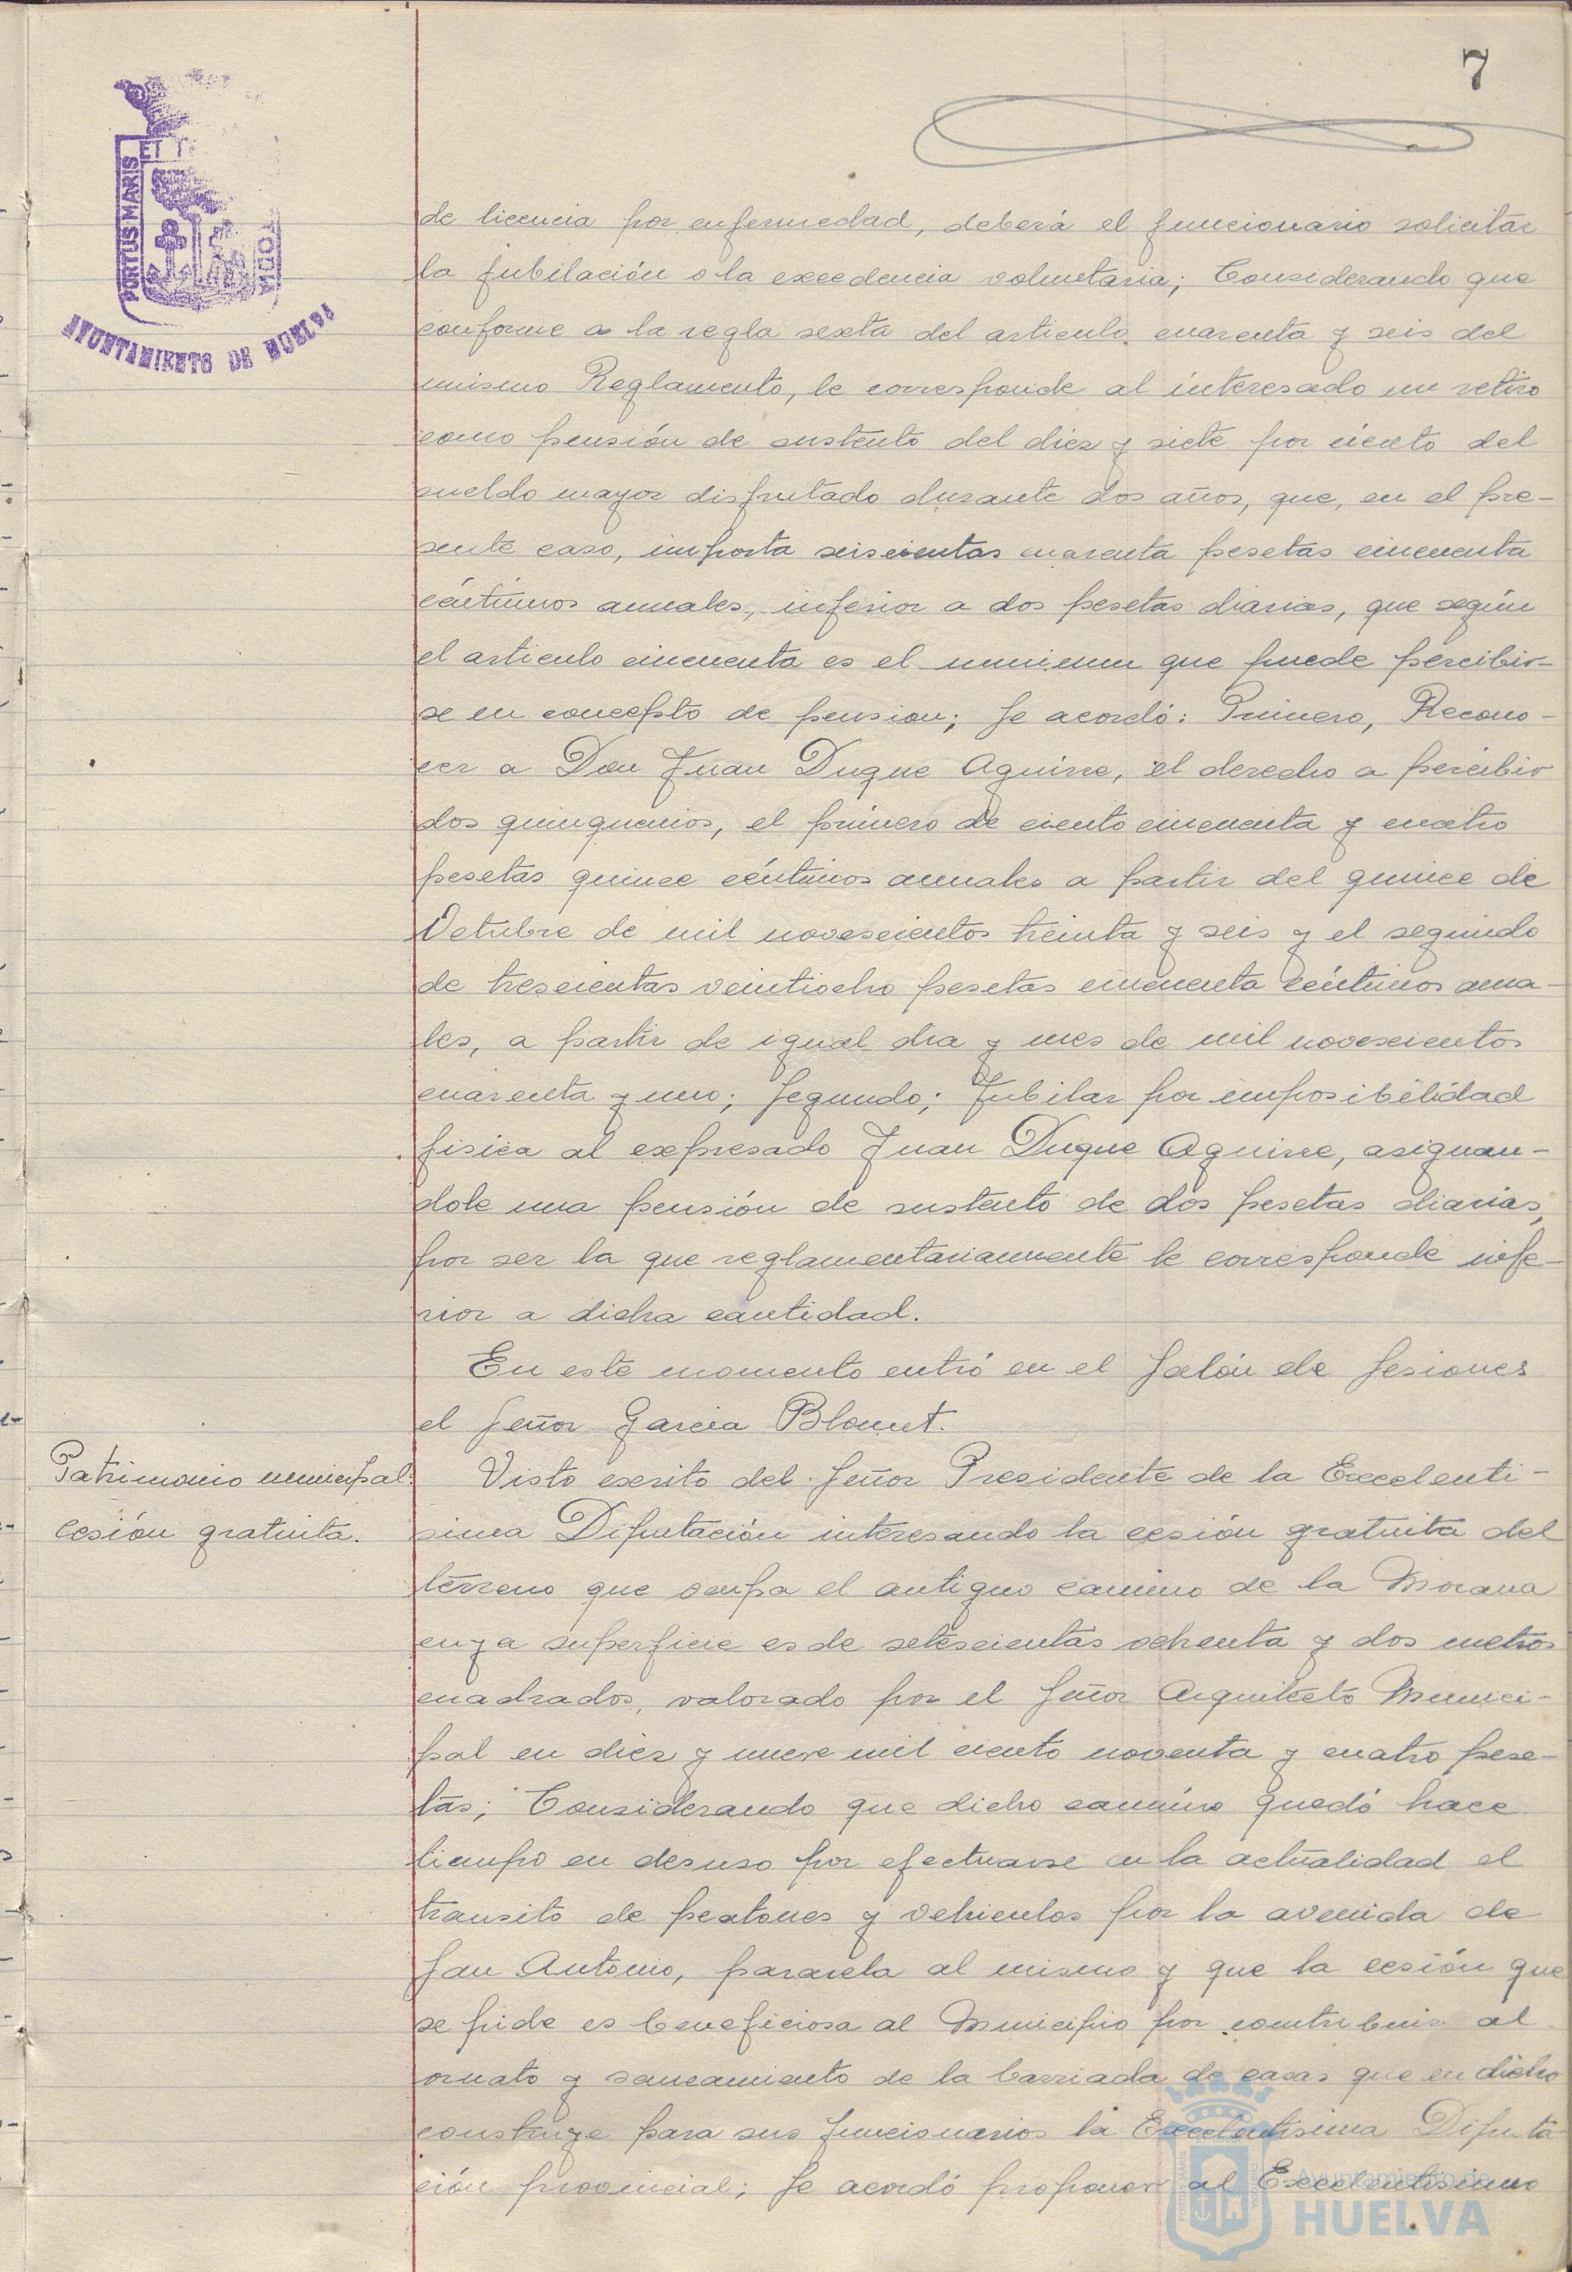 7
PORTUS MARIS
ET T
AYUNTAMIENTO DE HUELVA
de licencia por enfermedad, deberá el funcionario solicitar
la jubilación o la excedencia voluntaria; Considerando que
conforme a la regla sexta del articulo cuarenta y seis del
mismo Reglamento, le corresponde al interesado un retiro
como pensión de sustento del diez y siete por ciento del
sueldo mayor disfrutado durante dos años, que, en el pre-
sente caso, importa seiscientas cuarenta pesetas cincuenta
céntimos anuales, inferior a dos pesetas diarias, que según
el articulo cincuenta es el minimun que puede percibir-
se en concepto de pension; Se acordó: Primero, Recono-
cer a Don Juan Duque Aguirre, el derecho a percibir
dos quinquenios, el primero de ciento cincuenta y cuatro
pesetas quince céntimos anuales a partir del quince de
Octubre de mil novescientos treinta y seis y el segundo
de trescientas veintiocho pesetas cincuenta céntimos anua-
les, a partir de igual dia y mes de mil novescientos
cuarenta y uno; Segundo; Jubilar por imposibilidad
fisica al expresado Juan Duque Aguirre, asignan-
dole una pensión de sustento de dos pesetas diarias,
por ser la que reglamentariamente le corresponde infe-
rior a dicha cantidad.
En este momento entró en el Salón de Sesiones
el Señor Garcia Blomet.
Patrimonio municipal.
cesión gratuita.
Visto escrito del Señor Presidente de la Excelenti-
sima Diputación interesando la cesión gratuita del
terreno que ocupa el antiguo camino de la Morana
cuya superficie es de setescientas ochenta y dos metros
cuadrados, valorado por el Señor Arquitecto Munici-
pal en diez y nueve mil ciento noventa y cuatro pese-
tas; Considerando que dicho camino quedó hace
tiempo en desuso por efectuarse en la actualidad el
transito de peatones y vehiculos por la avenida de
San Antonio, pararela al mismo y que la cesión que
se pide es beneficiosa al Municipio por contribuir al
ornato y saneamiento de la barriada de casas que en dicho
construye para sus funcionarios la Excelentisima Diputa
ción provincial; Se acordó proponer al Excelentisimo
Ayuntamiento de
HUELVA